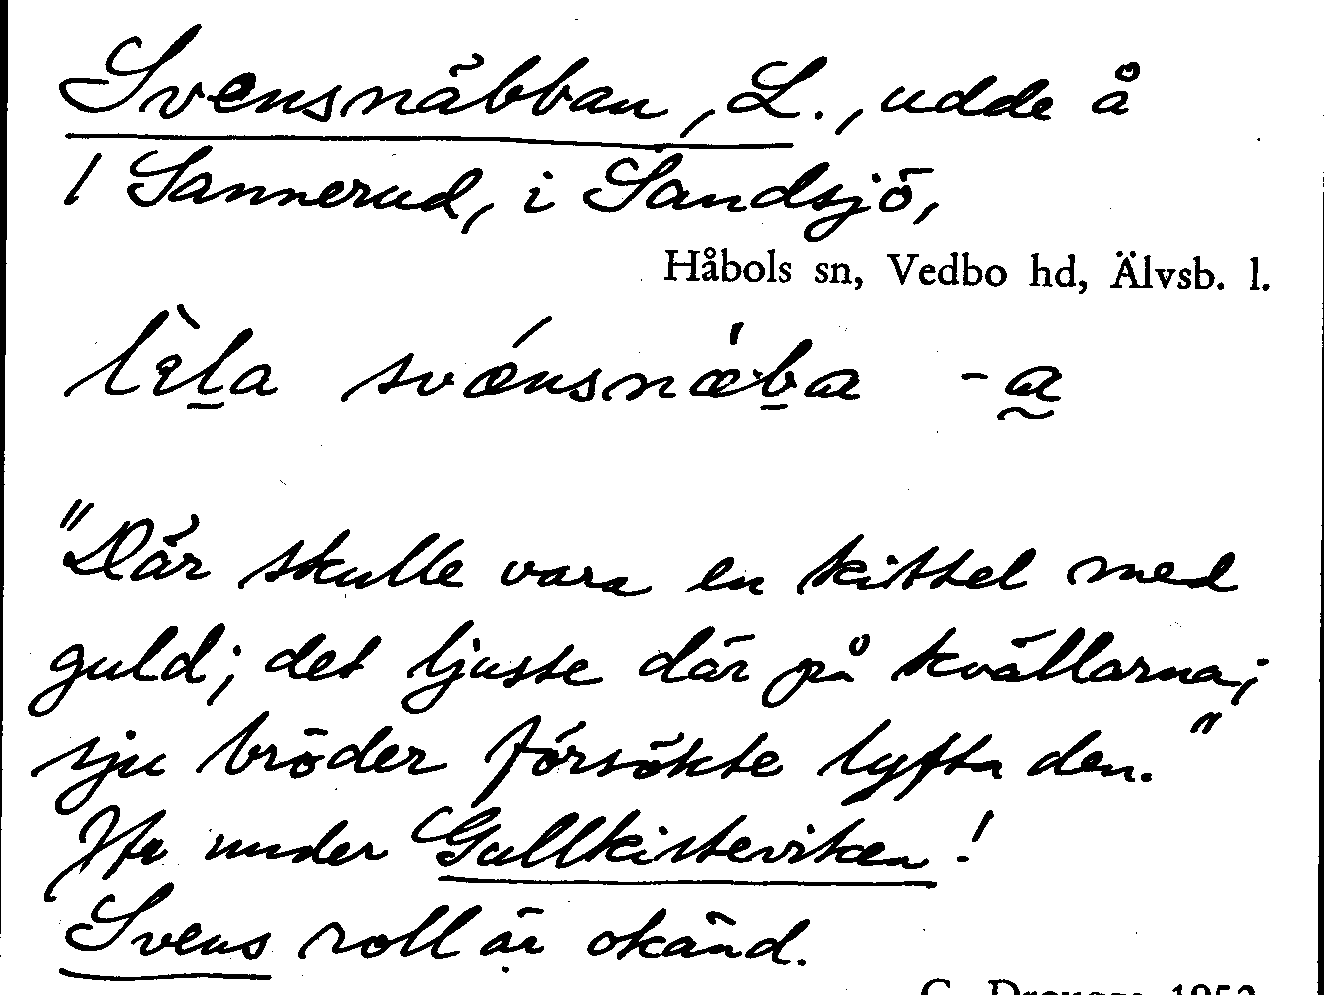 Svensnäbban, L., udde å
1 Sannerud, i Sandsjö,
Håbols sn, Vedbo hd, Älvsb. l.
lèla svǽnsnæ̀ba -a
"Där skulle vara en kittel med
guld; det ljuste där på kvällarna;
sju bröder försökte lyfta den."
Jfr under Gullkisteviken!
Svens roll är okänd.